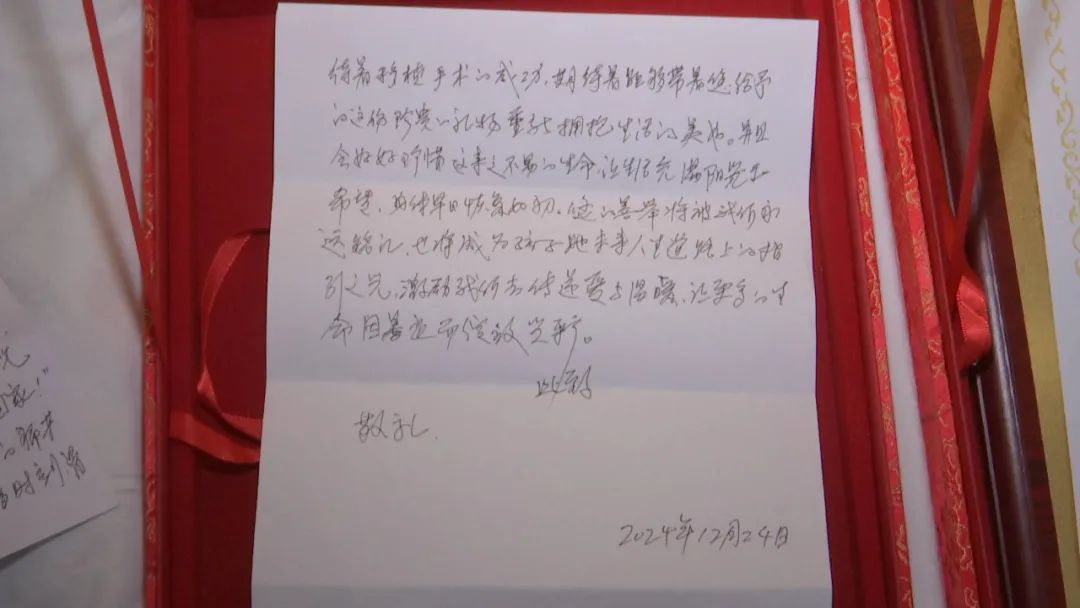 待着移植手术的成功，期待着能够带着您给予
的这份珍贵的礼物重新拥抱生活的美好。并且
会好好珍惜这来之不易的生命，让生活充满阳光与
希望，期待早日恢复如初。您的善举将被我们永
远铭记，也将成为孩子她未来人生道路上的指
引之光，激励我们去传递爱与温暖，让更多的生
命因善意而绽放光彩。
此致
敬礼
2024年12月24日
光
回家！”